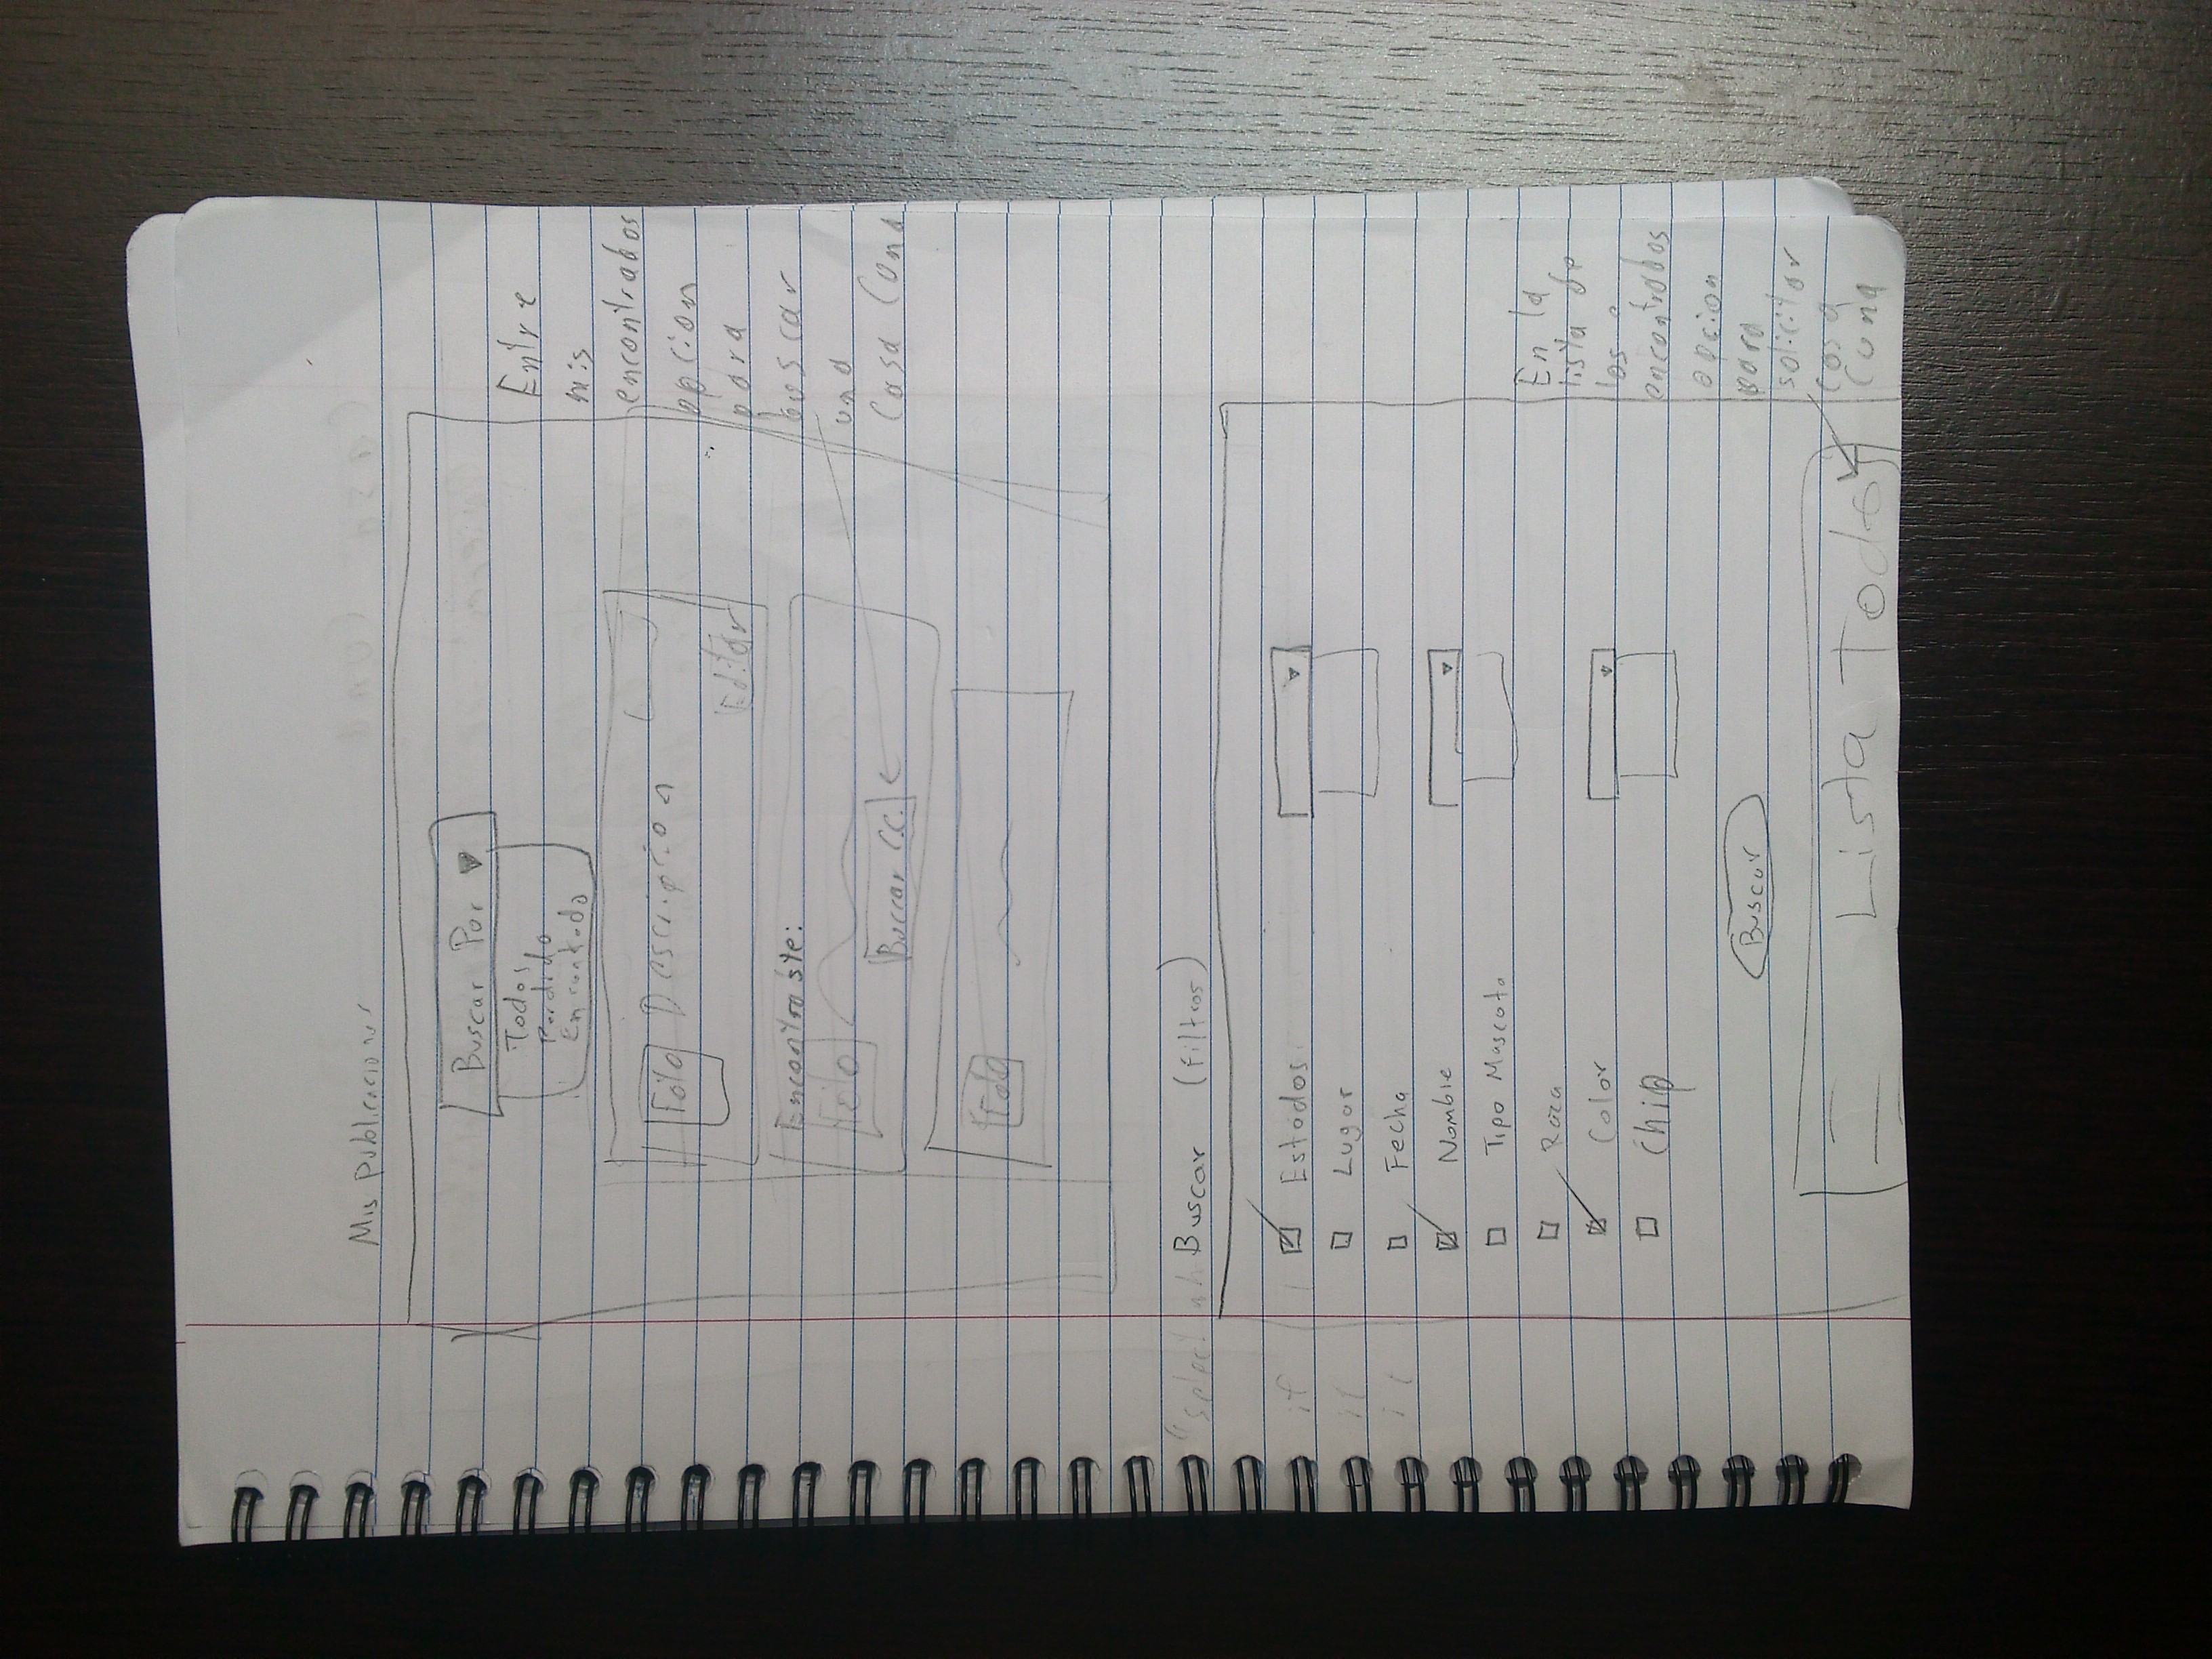 Mis publicaciones
Buscar Por
Todos
Perdido
Encontrado
Foto Descripcion
Editar
Encontraste:
Foto
Buscar C.C.
Foto
Entre
mis
encontrados
opcion
para
buscar
una
Casa Cuna
"select
Buscar (Filtros)
if
if
if
Estados
Lugar
Fecha
Nombre
Tipo Mascota
Raza
Color
Chip
Buscar
Lista Todos
En la
lista de
los
encontrados
opcion
para
solicitar
casa
Cuna